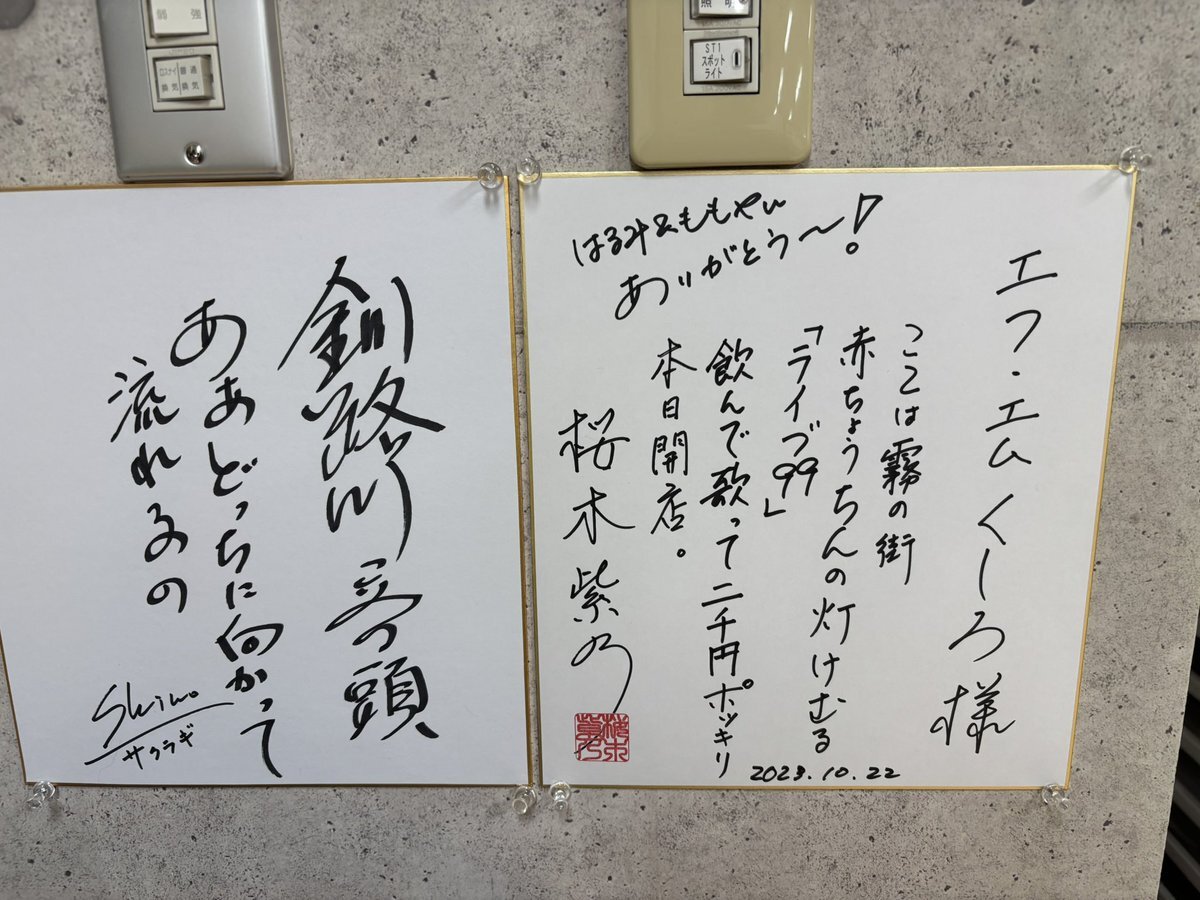 弱 強
ロスナイ 普通
換気 換気
照明
ST1
スポット
ライト
エフ・エムくしろ様
ここは霧の街
赤ちょうちんの灯けむる
「ライブ99」
飲んで歌って二千円ポッキリ
本日開店。
はるみ&ももちゃん
ありがとう〜!
桜木紫乃
2023.10.22
釧路川音頭
ああどっちに向かって
流れるの
Shino
サクラギ